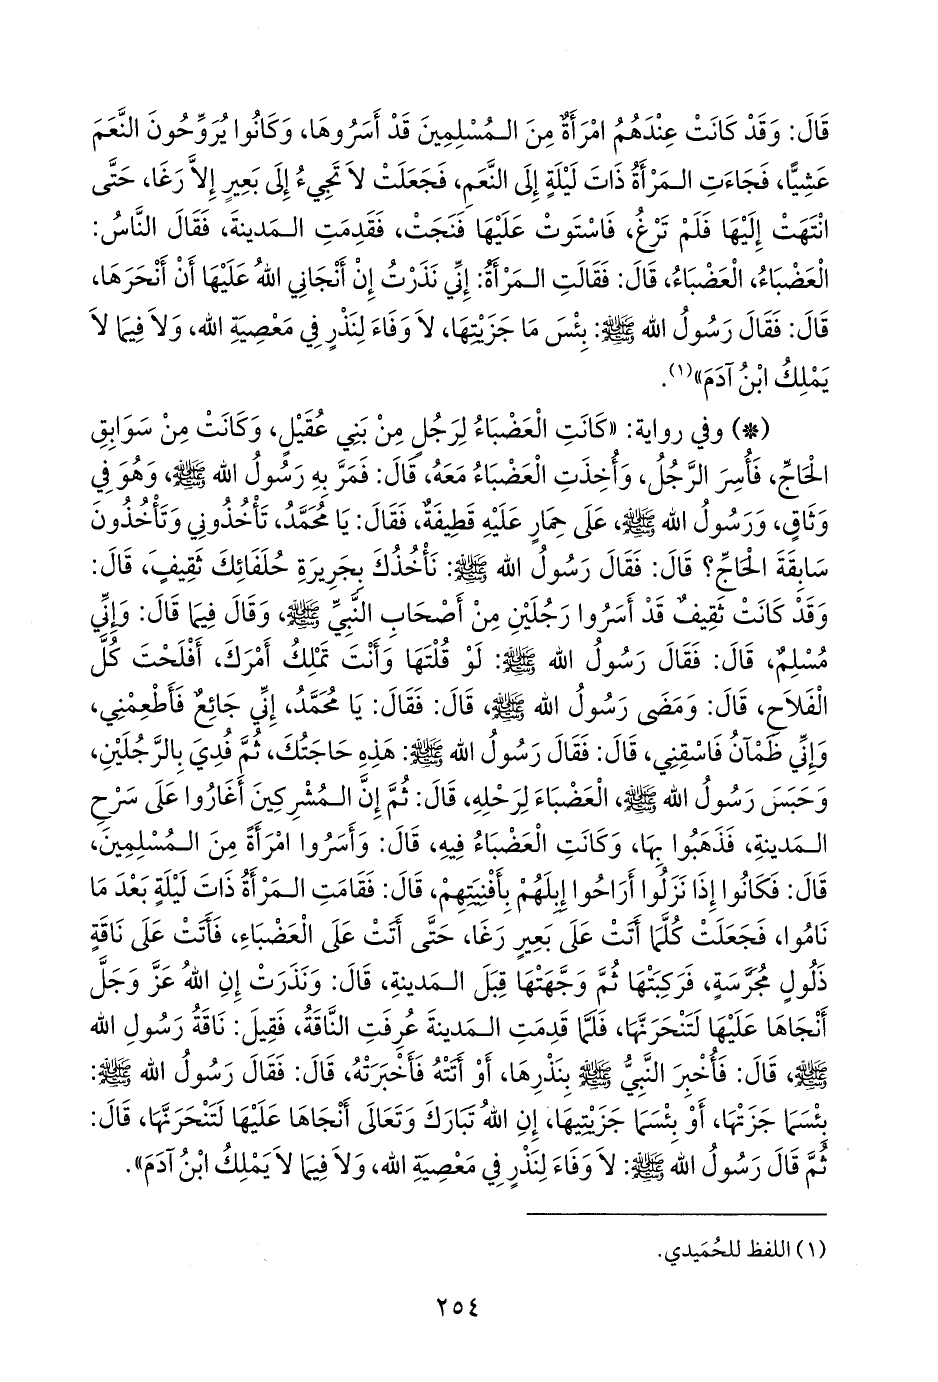 قَالَ: وَقَدْ كَانَتْ عِنْدَهُمُ امْرَأَةٌ مِنَ الـمُسْلِمِينَ قَدْ أَسَرُوهَا، وَكَانُوا يُرَوِّحُونَ النَّعَمَ
عَشِيًّا، فَجَاءَتِ الـمَرْأَةُ ذَاتَ لَيْلَةٍ إِلَى النَّعَمِ، فَجَعَلَتْ لاَ تَجِيءُ إِلَى بَعِيرٍ إِلاَّ رَغَا، حَتَّى
انْتَهَتْ إِلَيْهَا فَلَمْ تَرْغُ، فَاسْتَوتْ عَلَيْهَا فَنَجَتْ، فَقَدِمَتِ الـمَدِينةَ، فَقَالَ النَّاسُ:
الْعَضْبَاءُ، الْعَضْبَاءُ، قَالَ: فَقَالَتِ الـمَرْأَةُ: إِنِّي نَذَرْتُ إِنْ أَنْجَانِي اللهُ عَلَيْهَا أَنْ أَنْحَرَهَا،
قَالَ: فَقَالَ رَسُولُ الله ﷺ: بِئْسَ مَا جَزَيْتِهَا، لاَ وَفَاءَ لِنَذْرٍ فِي مَعْصِيَةِ الله، وَلاَ فِيمَا لاَ
يَمْلِكُ ابْنُ آدَمَ»(١).
(*) وفي رواية: «كَانَتِ الْعَضْبَاءُ لِرَجُلٍ مِنْ بَنِي عُقَيْلٍ، وَكَانَتْ مِنْ سَوَابِقِ
الْحَاجِّ، فَأُسِرَ الرَّجُلُ، وَأُخِذَتِ الْعَضْبَاءُ مَعَهُ، قَالَ: فَمَرَّ بِهِ رَسُولُ الله ﷺ، وَهُوَ فِي
وَثَاقٍ، وَرَسُولُ الله ﷺ، عَلَى حِمَارٍ عَلَيْهِ قَطِيفَةٌ، فَقَالَ: يَا مُحَمَّدُ، تَأْخُذُونِي وَتَأْخُذُونَ
سَابِقَةَ الْحَاجِّ؟ قَالَ: فَقَالَ رَسُولُ الله ﷺ: نَأْخُذُكَ بِجَرِيرَةِ حُلَفَائِكَ ثَقِيفَ، قَالَ:
وَقَدْ كَانَتْ ثَقِيفٌ قَدْ أَسَرُوا رَجُلَيْنِ مِنْ أَصْحَابِ النَّبِيِّ ﷺ، وَقَالَ فِيمَا قَالَ: وَإِنِّي
مُسْلِمٌ، قَالَ: فَقَالَ رَسُولُ الله ﷺ: لَوْ قُلْتَهَا وَأَنْتَ تَمْلِكُ أَمْرَكَ، أَفْلَحْتَ كُلَّ
الْفَلاَحِ، قَالَ: وَمَضَى رَسُولُ الله ﷺ، قَالَ: فَقَالَ: يَا مُحَمَّدُ، إِنِّي جَائِعٌ فَأَطْعِمْنِي،
وَإِنِّي ظَمْآنُ فَاسْقِنِي، قَالَ: فَقَالَ رَسُولُ الله ﷺ: هَذِهِ حَاجَتُكَ، ثُمَّ فُدِيَ بِالرَّجُلَيْنِ،
وَحَبَسَ رَسُولُ الله ﷺ، الْعَضْبَاءَ لِرَحْلِهِ، قَالَ: ثُمَّ إِنَّ الـمُشْرِكِينَ أَغَارُوا عَلَى سَرْحِ
الـمَدِينةِ، فَذَهَبُوا بِهَا، وَكَانَتِ الْعَضْبَاءُ فِيهِ، قَالَ: وَأَسَرُوا امْرَأَةً مِنَ الـمُسْلِمِينَ،
قَالَ: فَكَانُوا إِذَا نَزَلُوا أَرَاحُوا إِبِلَهُمْ بِأَفْنِيَتِهِمْ، قَالَ: فَقَامَتِ الـمَرْأَةُ ذَاتَ لَيْلَةٍ بَعْدَ مَا
نَامُوا، فَجَعَلَتْ كُلَّمَا أَتَتْ عَلَى بَعِيرٍ رَغَا، حَتَّى أَتَتْ عَلَى الْعَضْبَاءِ، فَأَتَتْ عَلَى نَاقَةٍ
ذَلُولٍ مُجَرَّسَةٍ، فَرَكِبَتْهَا ثُمَّ وَجَّهَتْهَا قِبَلَ الـمَدِينةِ، قَالَ: وَنَذَرَتْ إِنِ اللهُ عَزَّ وَجَلَّ
أَنْجَاهَا عَلَيْهَا لَتَنْحَرَنَّهَا، فَلَمَّا قَدِمَتِ الـمَدِينةَ عُرِفَتِ النَّاقَةُ، فَقِيلَ: نَاقَةُ رَسُولِ الله
ﷺ، قَالَ: فَأُخْبِرَ النَّبِيُّ ﷺ بِنَذْرِهَا، أَوْ أَتَتْهُ فَأَخْبَرَتْهُ، قَالَ: فَقَالَ رَسُولُ الله ﷺ:
بِئْسَمَا جَزَتْهَا، أَوْ بِئْسَمَا جَزَيْتِيهَا، إِنِ اللهُ تَبَارَكَ وَتَعَالَى أَنْجَاهَا عَلَيْهَا لَتَنْحَرَنَّهَا، قَالَ:
ثُمَّ قَالَ رَسُولُ الله ﷺ: لاَ وَفَاءَ لِنَذْرٍ فِي مَعْصِيَةِ الله، وَلاَ فِيمَا لاَ يَمْلِكُ ابْنُ آدَمَ».
(١) اللفظ للحُمَيدي.
٢٥٤